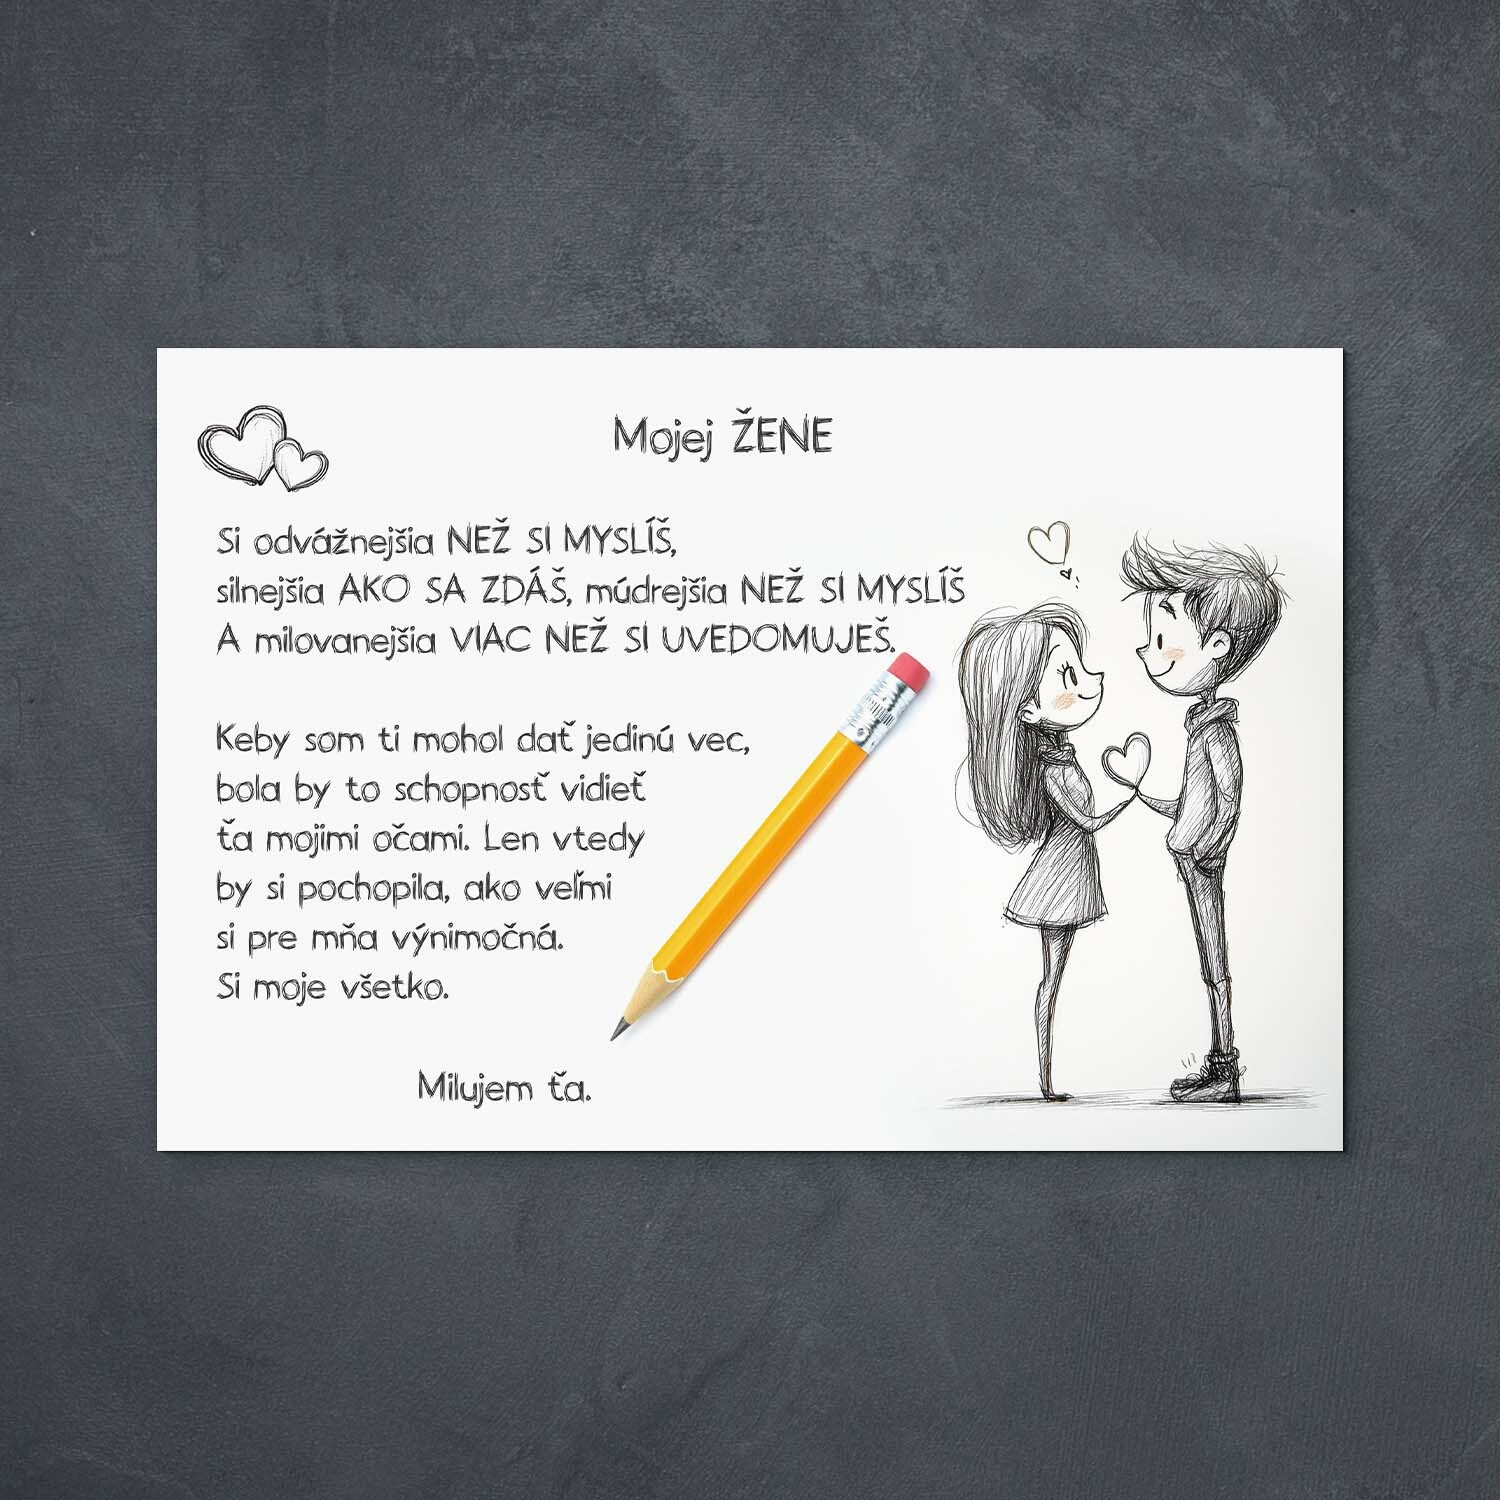 Mojej ŽENE
Si odvážnejšia NEŽ SI MYSLÍŠ,
silnejšia AKO SA ZDÁŠ, múdrejšia NEŽ SI MYSLÍŠ
A milovanejšia VIAC NEŽ SI UVEDOMUJEŠ.
Keby som ti mohol dať jedinú vec,
bola by to schopnosť vidieť
ťa mojimi očami. Len vtedy
by si pochopila, ako veľmi
si pre mňa výnimočná.
Si moje všetko.
Milujem ťa.